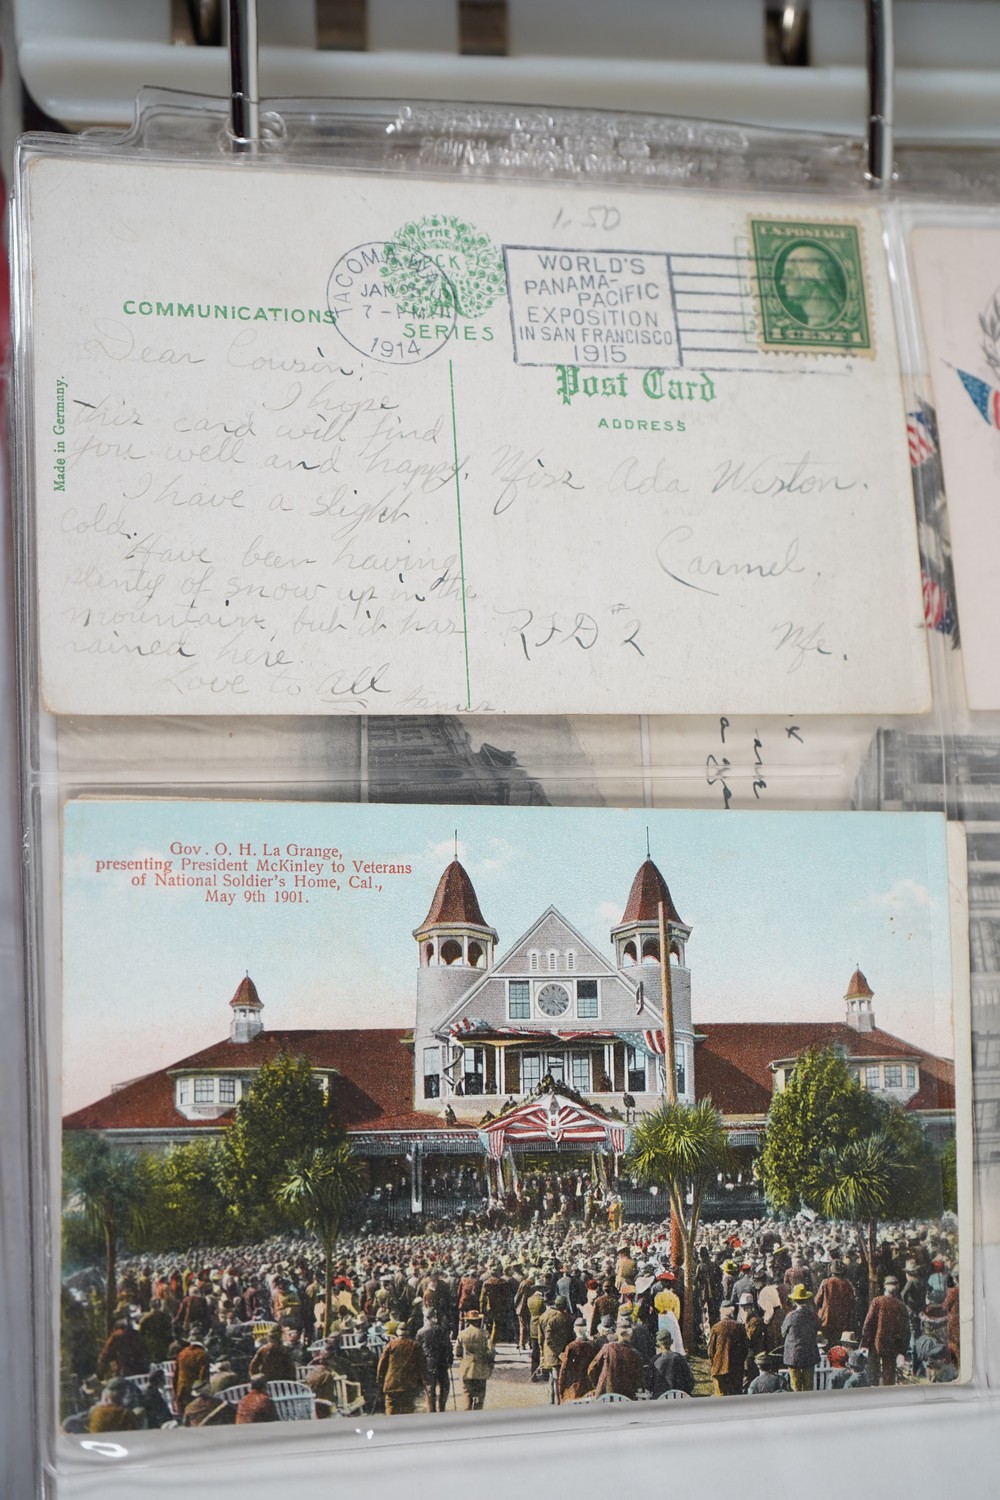 1.50
U.S. POSTAGE
1 CENT 1
THE
PECK
SERIES
TACOMA, WASH.
JAN
7-PM
1914
WORLD'S
PANAMA-
PACIFIC
EXPOSITION
IN SAN FRANCISCO
1915
COMMUNICATIONS
Post Card
ADDRESS
Made in Germany.
Dear Cousin:-
I hope
this card will find
you well and happy.
I have a slight
cold.
Have been having
plenty of snow up in the
mountains, but it has
rained here.
Love to All
James.
Miss Ada Weston.
Carmel.
RFD #2
Me.
Gov. O. H. La Grange,
presenting President McKinley to Veterans
of National Soldier's Home, Cal.,
May 9th 1901.